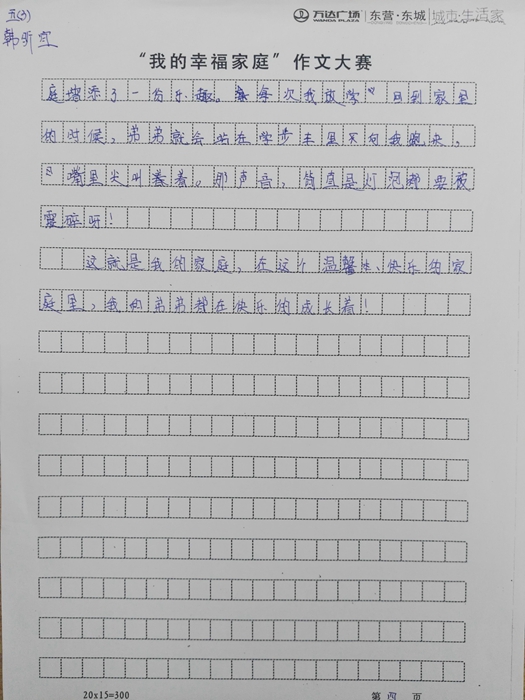 五(3)
韩昕宜
万达广场 WANDA PLAZA 东营·东城 城市·生活家
“我的幸福家庭”作文大赛
庭增添了一份乐趣。每次我放学回到家里
的时候，弟弟就会站在学步车里来向我跑来，
嘴里尖叫着。那声音，简直是灯泡都要被
震碎呀！
这就是我的家庭，在这个温馨、快乐的家
庭里，我和弟弟都在快乐的成长着！
20x15=300
第 四 页